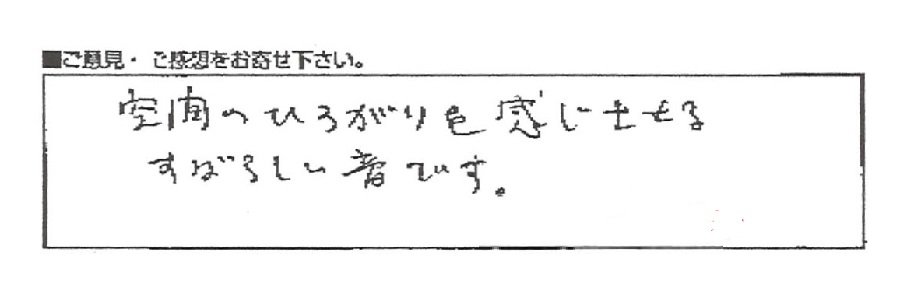 ■ご意見・ご感想をお寄せ下さい。
空間のひろがりを感じさせる
すばらしい音です。